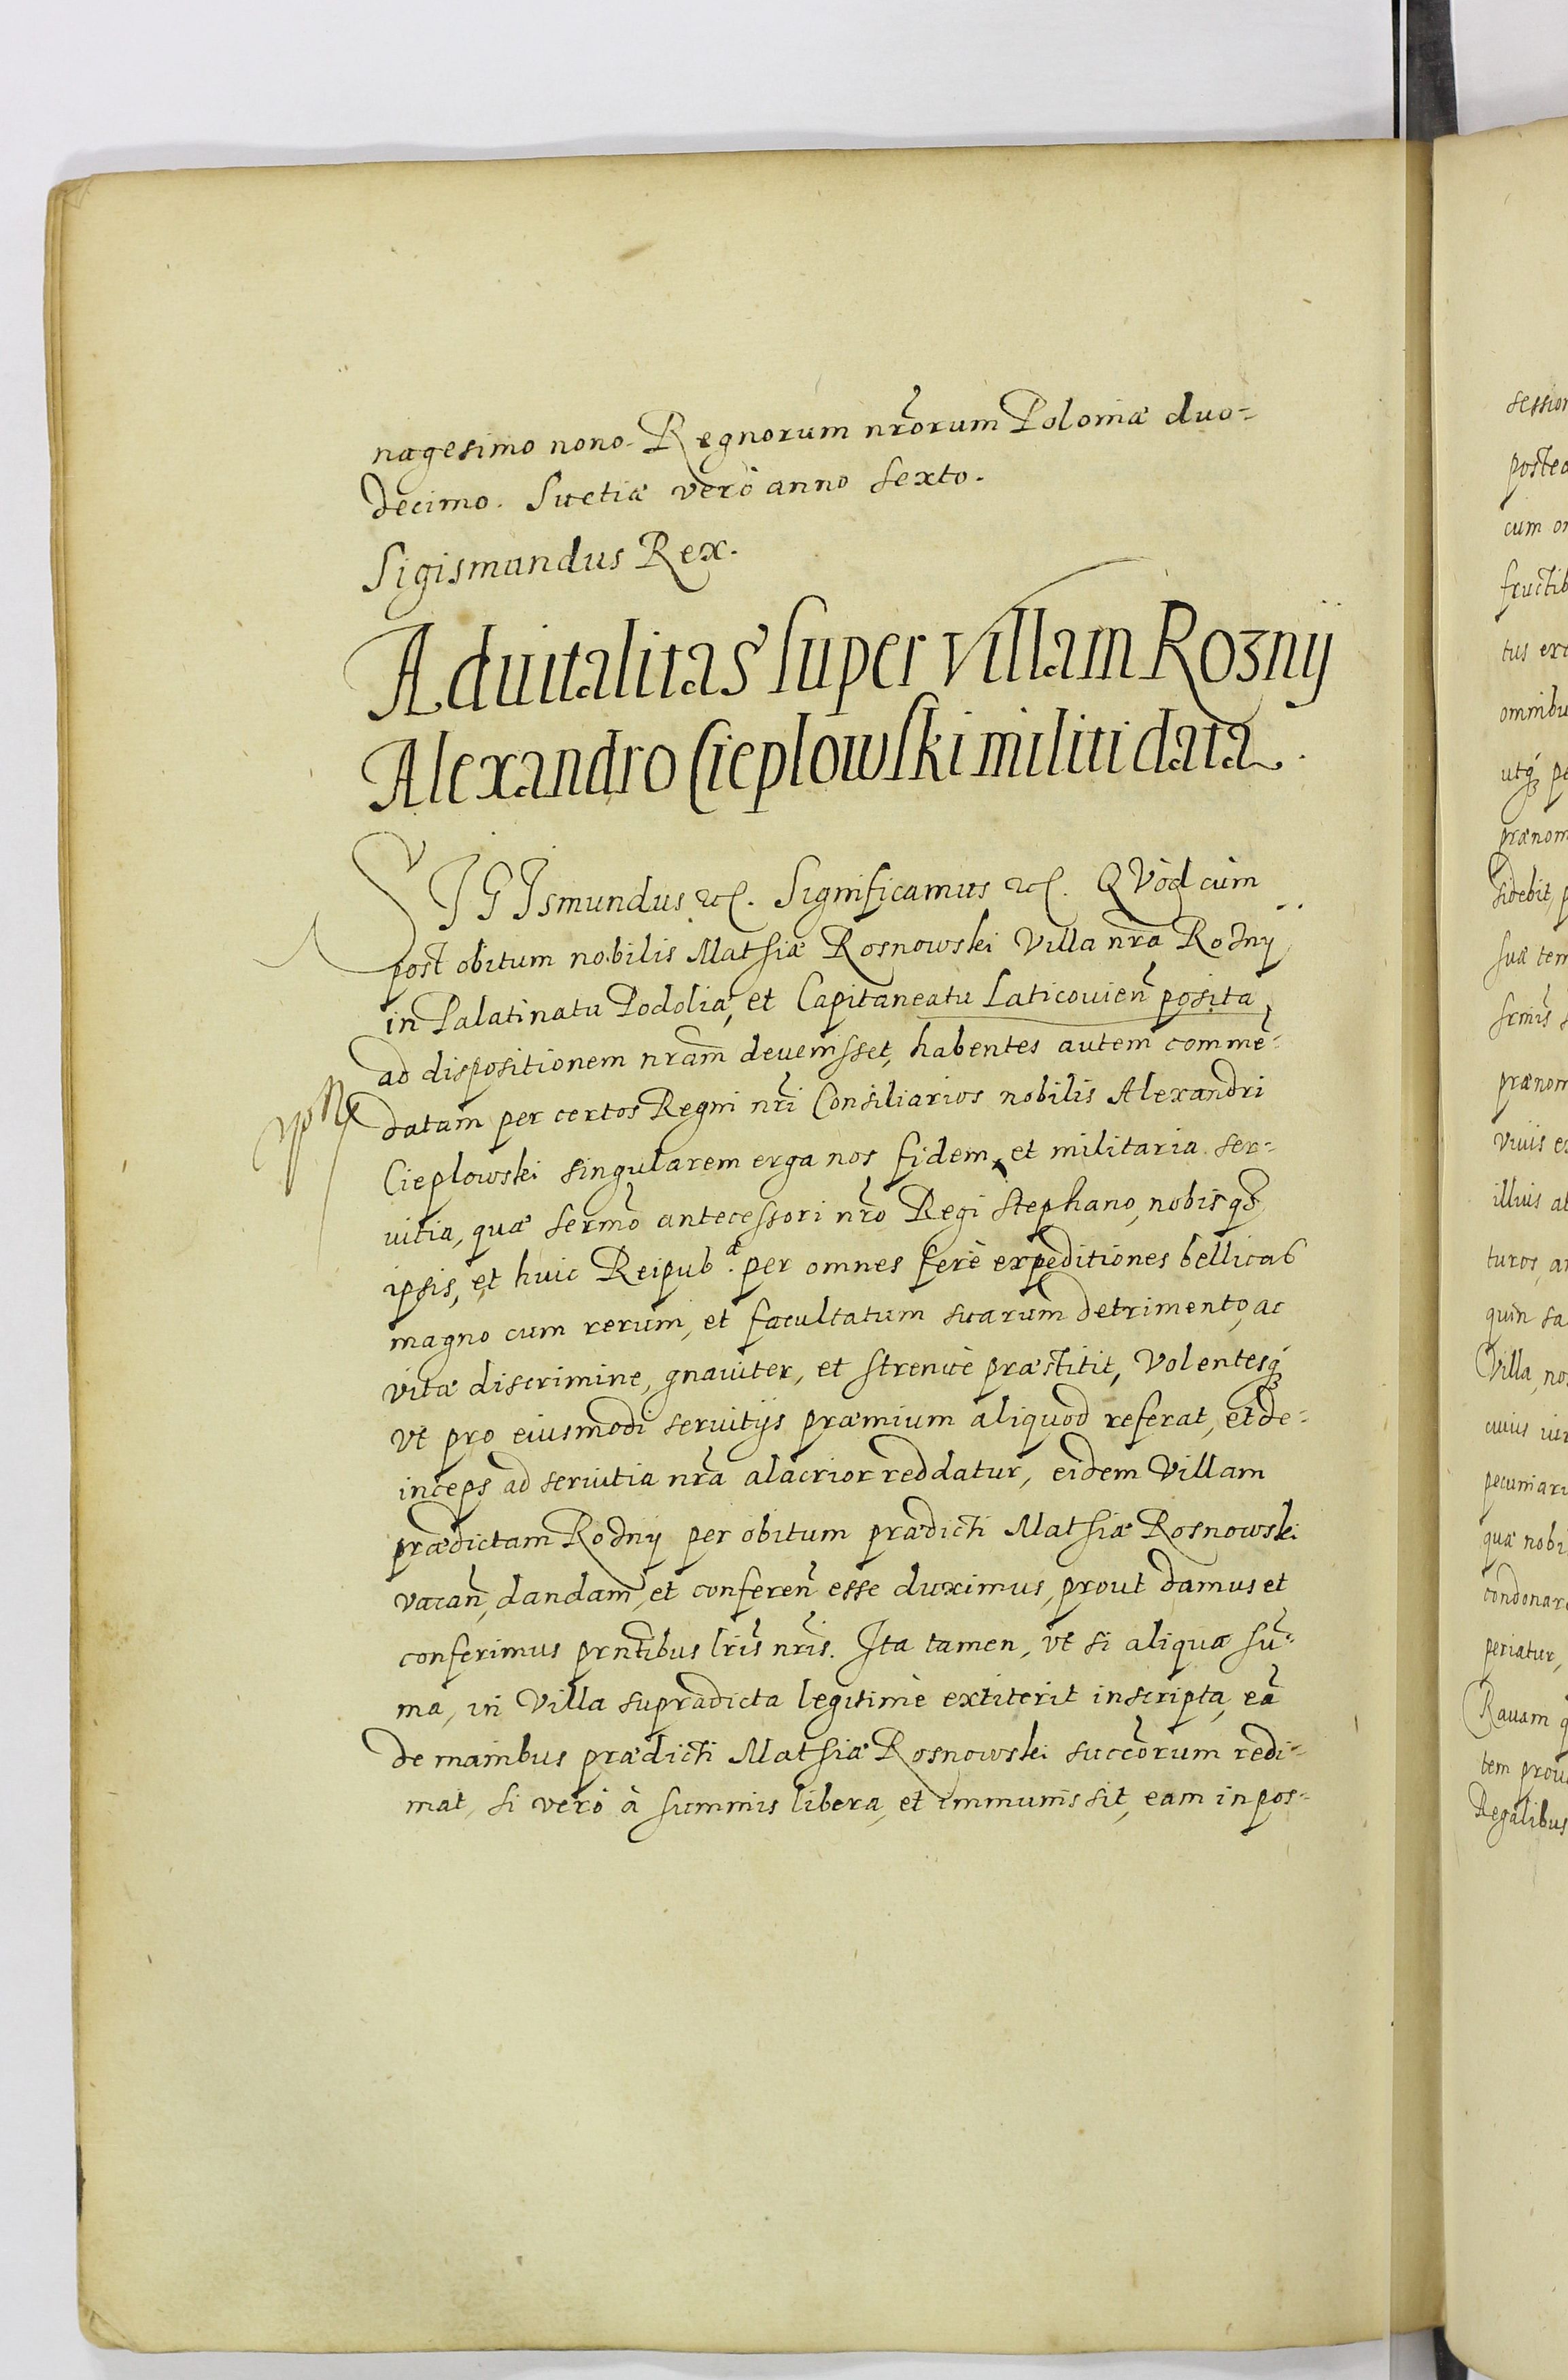 nagesimo nono. Regnorum nr̃orum Poloniæ duo-
decimo. Suetiæ verò anno sexto.
Sigismundus Rex.
Aduitalitas super villam Rozny
Alexandro Cieplowski militi data.
SIGIsmundus etc. Significamus etc. QVòd cùm
post obitum nobilis Mathiæ Rosnowski Villa nr̃a Rozny
in Palatinatu Podoliæ, et Capitaneatu Laticouien̄ posita,
ad dispositionem nr̃am deuenisset, habentes autem commē-
datam per certos Regni nr̃i Consiliarios nobilis Alexandri
Cieplowski singularem erga nos fidem, et militaria ser-
uitia, quæ sermō antecessori nr̃o Regi Stephano, nobisq3
ipsis, et huic Reipub.æ per omnes ferè expeditiones bellicas
magno cum rerum, et facultatum suarum detrimento, ac
vitæ discrimine, gnauiter, et strenuè præstitit, Volentesq3
vt pro eiusmodi seruitijs præmium aliquod referat, et de-
inceps ad seruitia nr̃a alacrior reddatur, eidem Villam
prædictam Rozny per obitum prædicti Mathiæ Rosnowski
vacan̄, dandam, et conferen̄ esse duximus, prout damus et
conferimus prn̄tibus lr̃is nr̃is. Ita tamen, vt si aliqua sū-
ma, in Villa supradicta legitimè extiterit inscripta, eā
de manibus prædicti Mathiæ Rosnowski succōrum redi-
mat, si verò à summis libera, et immunis sit, eam in pos-